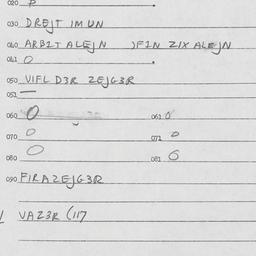 020 P
030 DREJT IM UN
040 ARB2T ALEJN )F2N ZIX ALEJN
041 O
050 VIFL D3R ZEJG3R
051 —
060 O 061 O
070 O 071 O
080 O 081 O
090 FIRAZEJG3R
VAZ3R (117